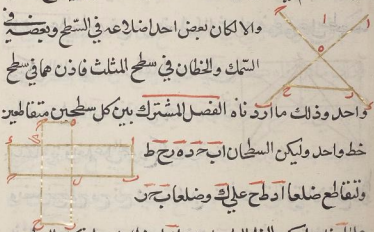 والا لكان بعض احد اضلاعه في السطح وبعضه في
السمك والخطان في سطح المثلث فاذن هما في سطح
واحد وذلك ما اردناه الفصل المشترك بين كل سطحين متقاطعين
خط واحد وليكن السطحان ا ب ح د ه ر ح ط
وتقاطع ضلعا ا د ط ح على ك وضلعا ب ح